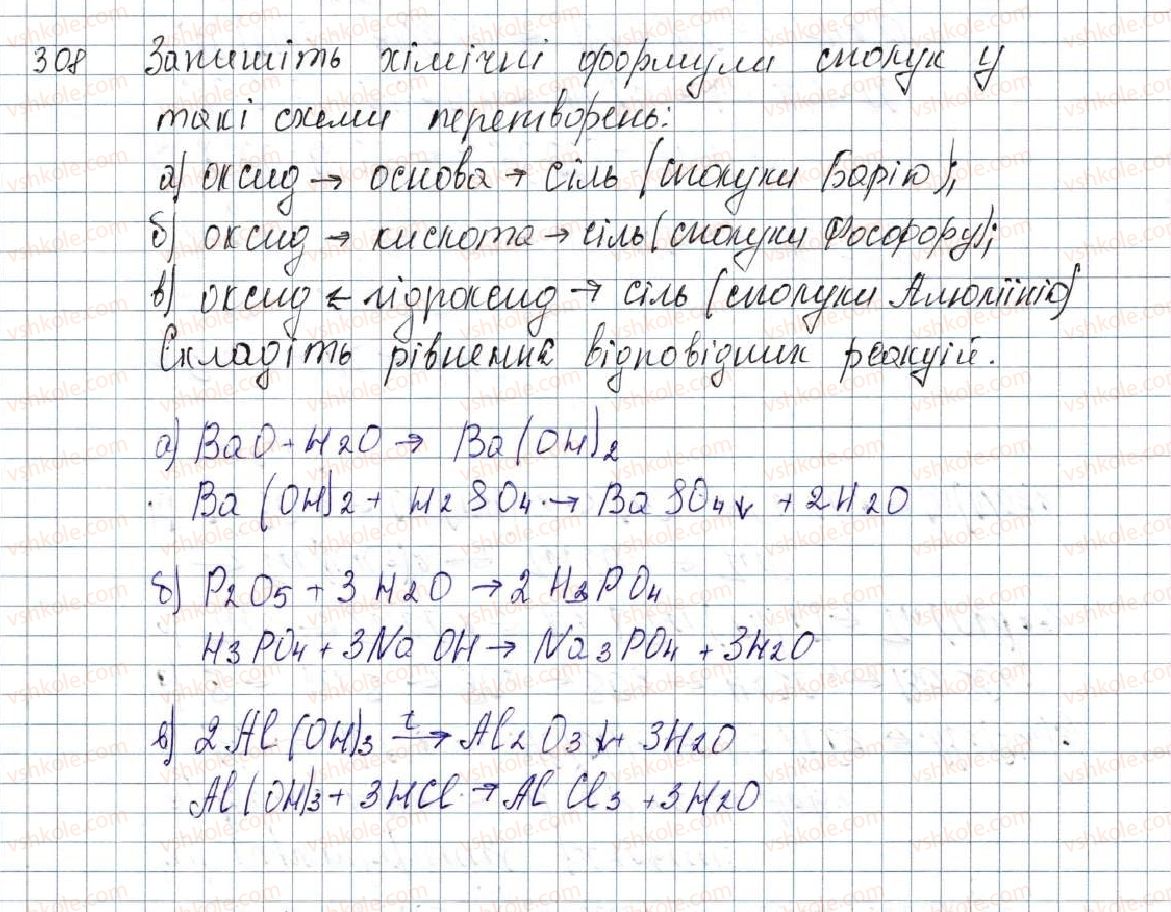 308 Запишіть хімічні формули сполук у
такі схеми перетворень:
а) оксид → основа → сіль (сполуки Барію);
б) оксид → кислота → сіль (сполуки Фосфору);
в) оксид ← гідроксид → сіль (сполуки Алюмінію)
Складіть рівняння відповідних реакцій.
а) BaO + H2O → Ba(OH)2
Ba(OH)2 + H2SO4 → BaSO4↓ + 2H2O
б) P2O5 + 3H2O → 2H3PO4
H3PO4 + 3NaOH → Na3PO4 + 3H2O
в) 2Al(OH)3 t→ Al2O3↓ + 3H2O
Al(OH)3 + 3HCl → AlCl3 + 3H2O